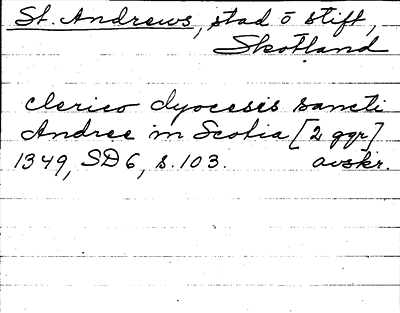 St. Andrews, stad o stift,
Skotland
clerico dyocesis sancti
Andree in Scotia [2 ggr]
1349, SD6, s. 103. avskr.